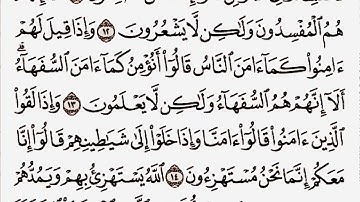 هُمُ ٱلْمُفْسِدُونَ وَلَٰكِن لَّا يَشْعُرُونَ ١٢ وَإِذَا قِيلَ لَهُمْ
ءَامِنُوا۟ كَمَآ ءَامَنَ ٱلنَّاسُ قَالُوٓا۟ أَنُؤْمِنُ كَمَآ ءَامَنَ ٱلسُّفَهَآءُ ۗ
أَلَآ إِنَّهُمْ هُمُ ٱلسُّفَهَآءُ وَلَٰكِن لَّا يَعْلَمُونَ ١٣ وَإِذَا لَقُوا۟
ٱلَّذِينَ ءَامَنُوا۟ قَالُوٓا۟ ءَامَنَّا وَإِذَا خَلَوْا۟ إِلَىٰ شَيَٰطِينِهِمْ قَالُوٓا۟ إِنَّا
مَعَكُمْ إِنَّمَا نَحْنُ مُسْتَهْزِءُونَ ١٤ ٱللَّهُ يَسْتَهْزِئُ بِهِمْ وَيَمُدُّهُمْ